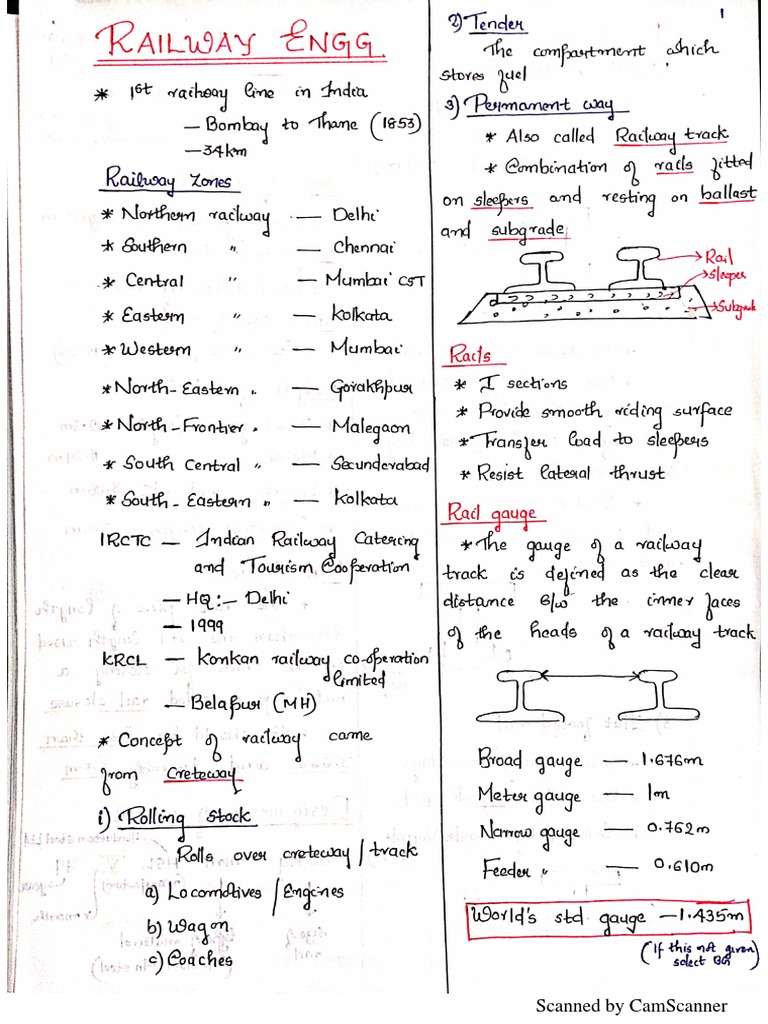 RAILWAY ENGG
* 1st railway line in India
— Bombay to Thane (1853)
— 34km
Railway Zones
* Northern railway — Delhi
* Southern " — Chennai
* Central " — Mumbai CST
* Eastern " — Kolkata
* Western " — Mumbai
* North-Eastern " — Gorakhpur
* North-Frontier " — Malegaon
* South Central " — Secunderabad
* South-Eastern " — Kolkata
IRCTC — Indian Railway Catering
and Tourism Cooperation
— HQ:- Delhi
— 1999
KRCL — Konkan railway co-operation
limited
— Belapur (MH)
* Concept of railway came
from Creteway
i) Rolling stock
Rolls over creteway/track
a) Locomotives/Engines
b) Wagon
c) Coaches
1
2) Tender
The compartment which
stores fuel
3) Permanent way
* Also called Railway track
* Combination of rails fitted
on sleepers and resting on ballast
and subgrade
Rail
Sleeper
Subgrade
Rails
* I sections
* Provide smooth riding surface
* Transfer load to sleepers
* Resist lateral thrust
Rail gauge
* The gauge of a railway
track is defined as the clear
distance b/w the inner faces
of the heads of a railway track
Broad gauge — 1.676m
Meter gauge — 1m
Narrow gauge — 0.762m
Feeder " — 0.610m
World's std gauge — 1.435m
(If this not given
select BG)
Scanned by CamScanner